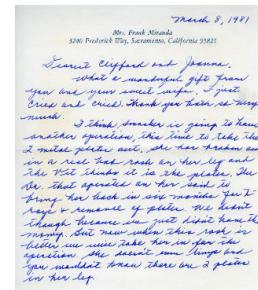 March 8, 1981
Mrs. Frank Miranda
3246 Frederick Way, Sacramento, California 95821
Dearest Clifford and Joanna.
What a wonderful gift from
you and your sweet wife. I just
cried and cried. Thank you both so very
much.
I think Smoker is going to have
another operation, this time to take the
2 metal plates out, she has broken out
in a real bad rash on her leg and
the Vet thinks it is the plates. The
Dr. that operated on her said to
bring her back in six months for X
rays & removal of plates. We hadn't
though because we just didn't have the
money. But now when this rash is
better we will take her in for the
operation, she doesn't even limp and
you wouldn't know there are 2 plates
in her leg.